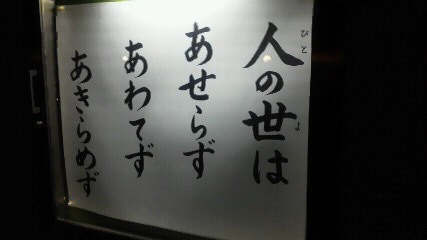 人の世は
あせらず
あわてず
あきらめず